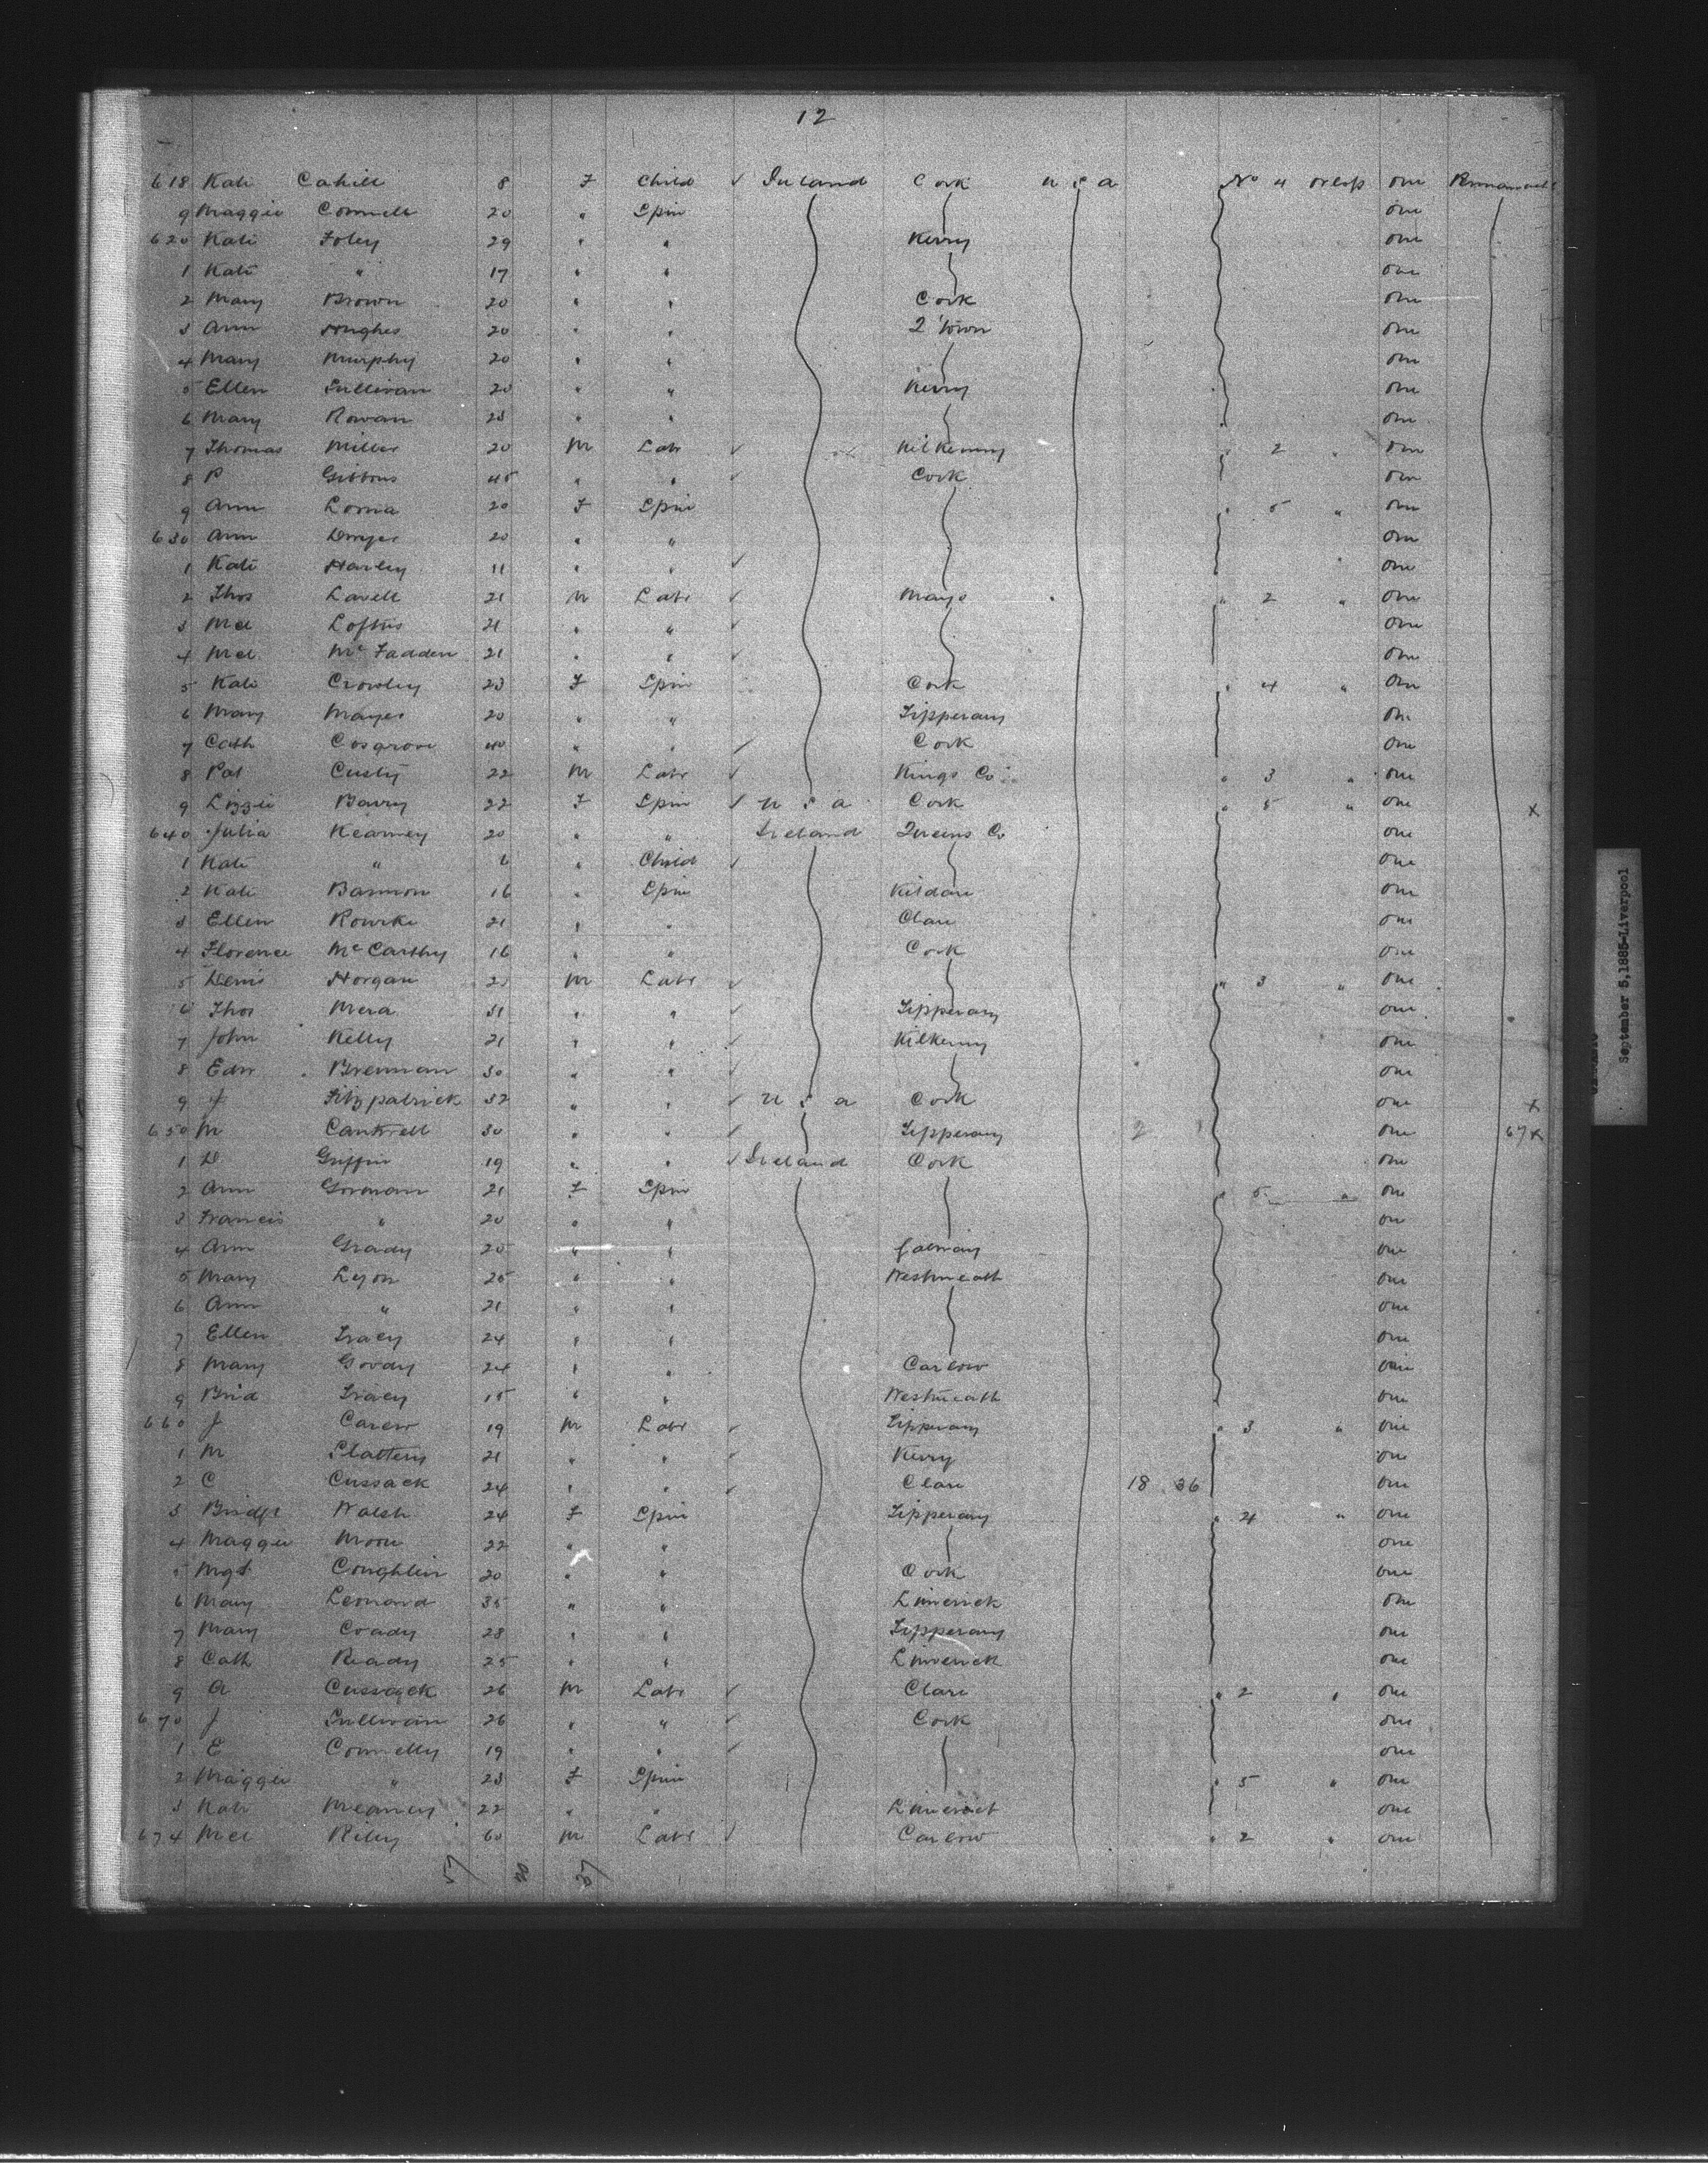 12
618 Kate Cahill 8 F Child ✓ Ireland Cork U S A No 4 orlop one Permanent
9 Maggie Connell 20 " Spin one
620 Kate Foley 29 " " Kerry one
1 Kate " 17 " " one
2 Mary Brown 20 " " Cork one
3 Ann Hughes 20 " " Q'Town one
4 Mary Murphy 20 " " one
5 Ellen Sullivan 20 " " Kerry one
6 Mary Rowan 23 " " one
7 Thomas Miller 20 M Labr ✓ Kilkenny " 2 " one
8 P Gibbons 45 " " ✓ Cork one
9 Ann 20 F Spin " 5 " one
630 Ann Dwyer 20 " " one
1 Kate Harley 11 " " ✓ one
2 Thos Lavell 21 M Labr ✓ Mayo " 2 " one
3 Ml Loftus 21 " " ✓ one
4 Ml McFadden 21 " " ✓ one
5 Kate Crowley 23 F Spin Cork " 4 " one
6 Mary Mayer 20 " " Tipperary one
7 Cath Cosgrove 40 " " ✓ Cork one
8 Pat Custy 22 M Labr ✓ Kings Co " 3 " one
9 Lizzie Barry 22 F Spin ✓ U S A Cork " 5 " one x
640 Julia Kearney 20 " " Ireland Queens Co one
1 Kate " 6 " Child ✓ one
2 Kate Bannon 16 " Spin Kildare one
3 Ellen Rourke 21 " " Clare one
4 Florence McCarthy 16 " " Cork one
5 Denis Horgan M Labr ✓ " 3 " one
6 Thos Mera 31 " " ✓ Tipperary one
7 John Kelly 21 " " ✓ Kilkenny one
8 Edw Brennan 30 " " ✓ one
9 J Fitzpatrick 32 " " ✓ U S A Cork one x
650 M Cantrell 30 " " ✓ Tipperary 2 one 67 x
1 D Griffin 19 " " ✓ Ireland Cork one
2 Ann Gorman 21 F Spin " 5 " one
3 Francis " 20 " " one
4 Ann Grady 20 " " Galway one
5 Mary Lyon 25 " " Westmeath one
6 Ann " 21 " " one
7 Ellen Tracy 24 " " one
8 Mary Goody 24 " " Carlow one
9 Brid Tracey 15 " " Westmeath one
660 J Carew 19 M Labr ✓ Tipperary " 3 " one
1 M Slattery 21 " " ✓ Kerry one
2 C Cussack 24 " " ✓ Clare 18 36 one
3 Bridgt Walsh 24 F Spin Tipperary " 4 " one
4 Maggie Moore 22 " " one
5 Mgt Coughlin 20 " " Cork one
6 Mary Leonard 35 " " Limerick one
7 Mary Coady 28 " " Tipperary one
8 Cath Ready 25 " " Limerick one
9 A Cussack 26 M Labr ✓ Clare " 2 " one
670 J Sullivan 26 " " ✓ Cork one
1 E Connelly 19 " " ✓ one
2 Maggie " 23 F Spin " 5 " one
3 Kate Meaney 22 " " Limerick one
674 Ml Riley 60 M Labr ✓ Carlow " 2 " one
57 20 37
September 5, 1885-Liverpool